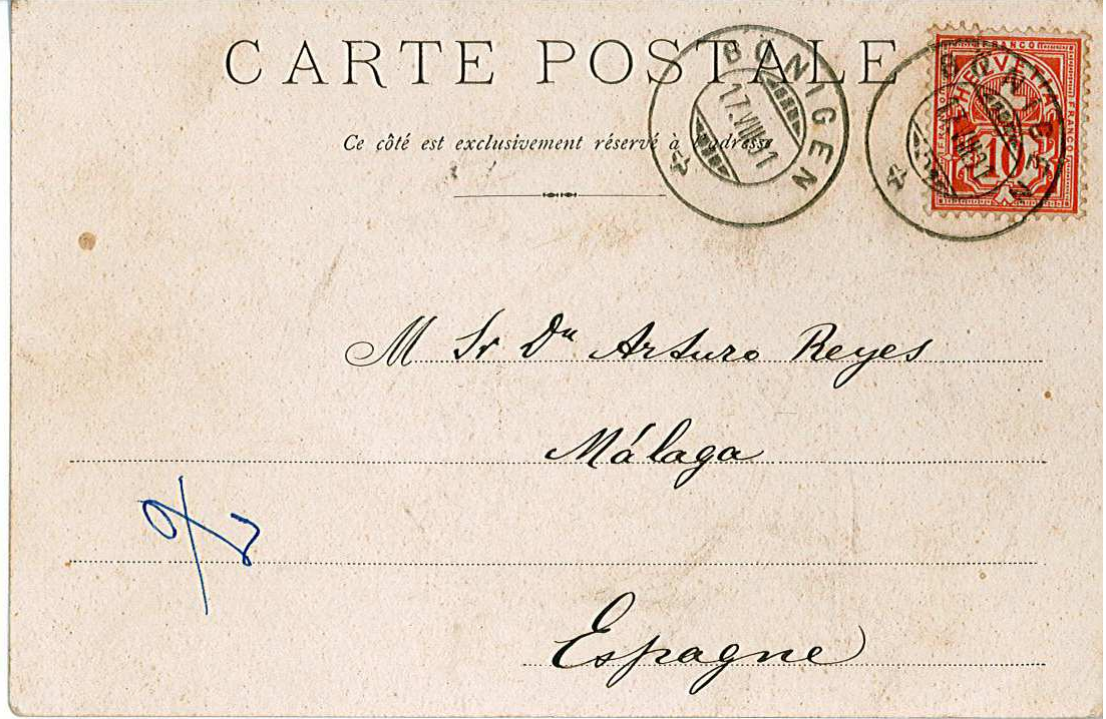 CARTE POSTALE
Ce côté est exclusivement réservé à l'adresse
BÖNIGEN
17.VIII.01
BÖNIGEN
17.VIII.01
FRANCO
HELVETIA
FRANCO
FRANCO
10
M Sr Dn Arturo Reyes
Málaga
Espagne